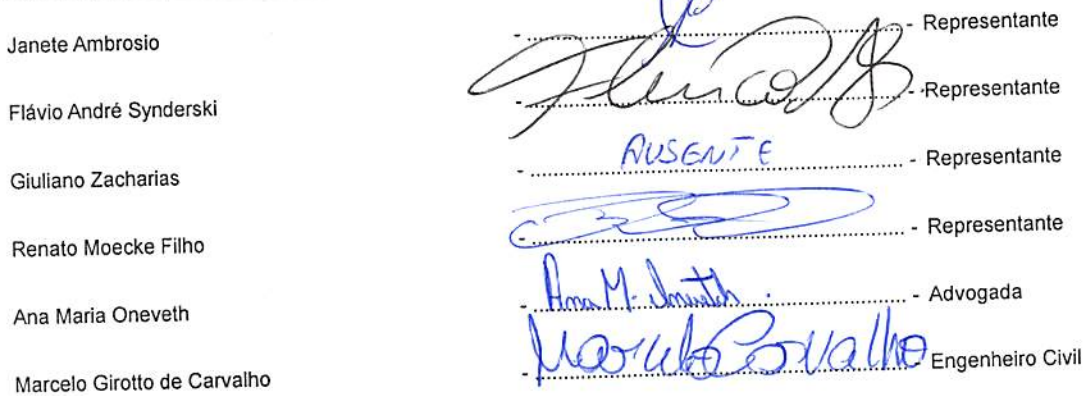 Janete Ambrosio - Representante
Flávio André Synderski - Representante
Giuliano Zacharias - AUSENTE - Representante
Renato Moecke Filho - Representante
Ana Maria Oneveth - Ana M. - Advogada
Marcelo Girotto de Carvalho - Marcelo Carvalho Engenheiro Civil